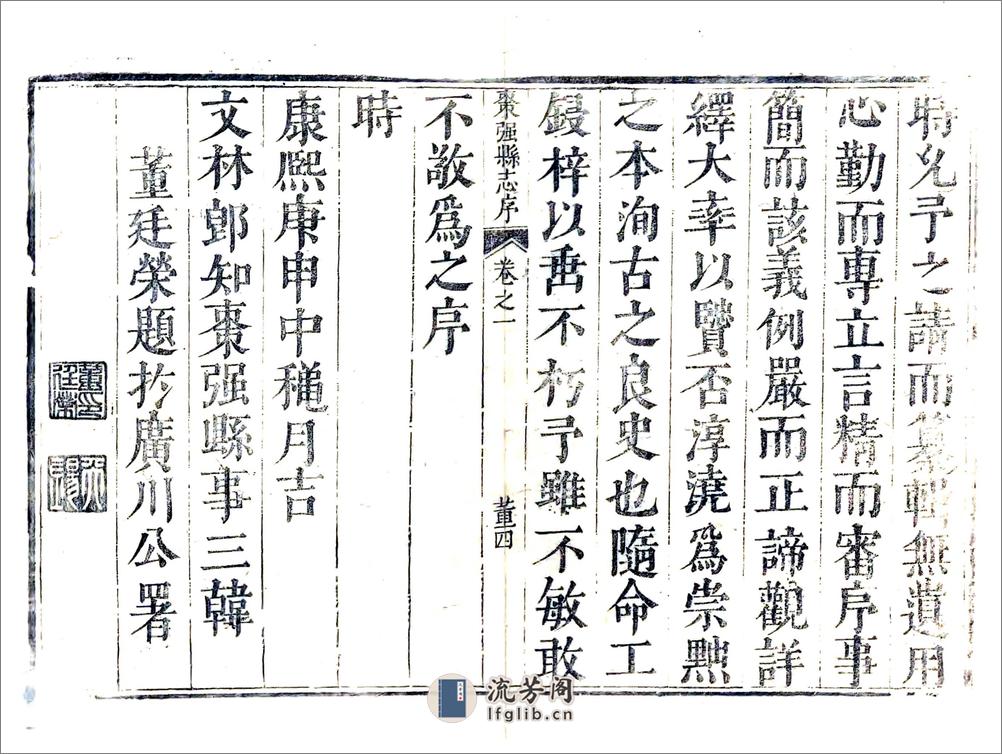 時允予之請而纂輯無遺用
心勤而專立言精而審序事
簡而該義例嚴而正諦觀詳
繹大率以賢否淳澆為崇黜
之本洵古之良史也隨命工
鋟梓以垂不朽予雖不敏敢
棗强縣志序 卷之一 董四
不敬爲之序
時
康熙庚申中穐月吉
文林郎知棗强縣事三韓
董廷榮題於廣川公署
董印廷榮
流芳阁
lfglib.cn